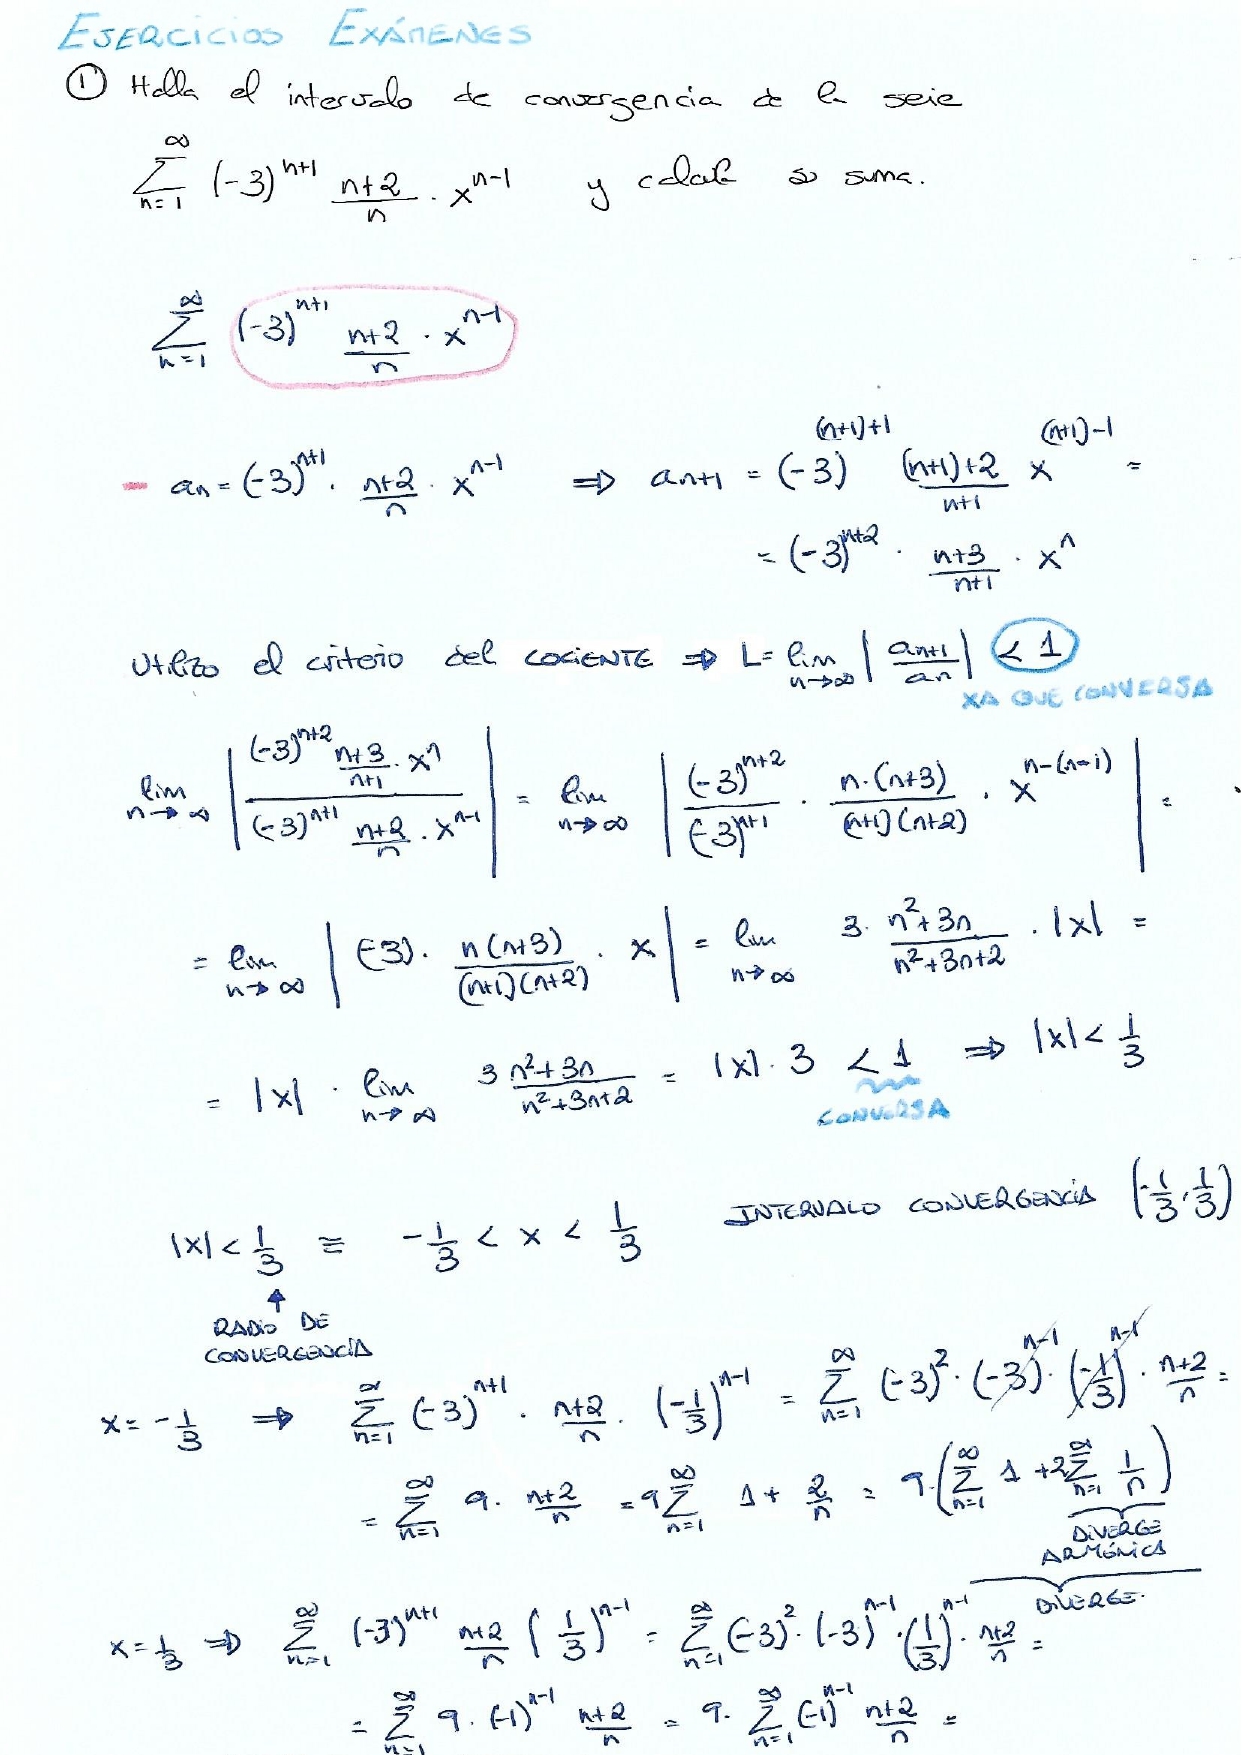 EJERCICIOS EXÁMENES
① Halla el intervalo de convergencia de la serie
∑_{n=1}^{∞} (-3)^{n+1} \frac{n+2}{n} · x^{n-1} y calcula su suma.
∑_{n=1}^{∞} (-3)^{n+1} \frac{n+2}{n} · x^{n-1}
- an = (-3)^{n+1} · \frac{n+2}{n} · x^{n-1} ⇒ an+1 = (-3)^{(n+1)+1} \frac{(n+1)+2}{n+1} x^{(n+1)-1} =
= (-3)^{n+2} · \frac{n+3}{n+1} · x^n
Utilizo el criterio del COCIENTE ⇒ L = lim_{n→∞} |\frac{an+1}{an}| < 1
XA QUE CONVERSA
lim_{n→∞} |\frac{(-3)^{n+2} \frac{n+3}{n+1} · x^n}{(-3)^{n+1} \frac{n+2}{n} · x^{n-1}}| = lim_{n→∞} |\frac{(-3)^{n+2}}{(-3)^{n+1}} · \frac{n·(n+3)}{(n+1)(n+2)} · x^{n-(n-1)}| =
= lim_{n→∞} |(-3) · \frac{n(n+3)}{(n+1)(n+2)} · x| = lim_{n→∞} 3 · \frac{n^2+3n}{n^2+3n+2} · |x| =
= |x| · lim_{n→∞} 3 \frac{n^2+3n}{n^2+3n+2} = |x| · 3 < 1 ⇒ |x| < \frac{1}{3}
CONVERSA
|x| < \frac{1}{3} ≡ -\frac{1}{3} < x < \frac{1}{3} INTERVALO CONVERGENCIA (-\frac{1}{3}, \frac{1}{3})
↑
RADIO DE
CONVERGENCIA
x = -\frac{1}{3} ⇒ ∑_{n=1}^{∞} (-3)^{n+1} · \frac{n+2}{n} · (-\frac{1}{3})^{n-1} = ∑_{n=1}^{∞} (-3)^2 · (-3)^{n-1} · (-\frac{1}{3})^{n-1} · \frac{n+2}{n} =
= ∑_{n=1}^{∞} 9 · \frac{n+2}{n} = 9 ∑_{n=1}^{∞} 1 + \frac{2}{n} = 9·(∑_{n=1}^{∞} 1 + 2∑_{n=1}^{∞} \frac{1}{n})
DIVERGE
ARMÓNICA
DIVERGE.
x = \frac{1}{3} ⇒ ∑_{n=1}^{∞} (-3)^{n+1} \frac{n+2}{n} (\frac{1}{3})^{n-1} = ∑_{n=1}^{∞} (-3)^2 · (-3)^{n-1} · (\frac{1}{3})^{n-1} · \frac{n+2}{n} =
= ∑_{n=1}^{∞} 9 · (-1)^{n-1} \frac{n+2}{n} = 9 · ∑_{n=1}^{∞} (-1)^{n-1} \frac{n+2}{n} =